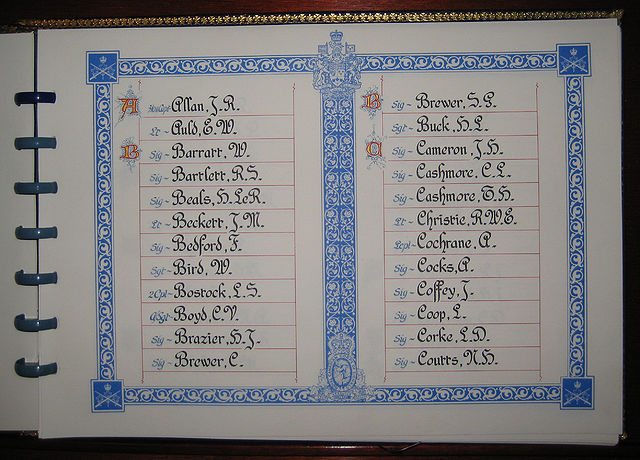 A
Allan, J.R.
Lt ~ Auld, E.W.
B
Sig ~ Barratt, W.
Sig ~ Bartlett, R.S.
Sig ~ Beals, H. LeR.
Lt ~ Beckett, J.M.
Sig ~ Bedford, F.
Sgt ~ Bird, W.
2Cpl ~ Bostock, L.S.
Boyd, C.V.
Sig ~ Brazier, H.J.
Sig ~ Brewer, C.
B
Sig ~ Brewer, S.G.
Sgt ~ Buck, H.L.
C
Sig ~ Cameron, J.H.
Sig ~ Cashmore, C.L.
Sig ~ Cashmore, T.H.
Lt ~ Christie, R.W.E.
Lcpl ~ Cochrane, A.
Sig ~ Cocks, A.
Sig ~ Coffey, J.
Sig ~ Coop, L.
Sig ~ Corke, L.D.
Sig ~ Coutts, N.H.